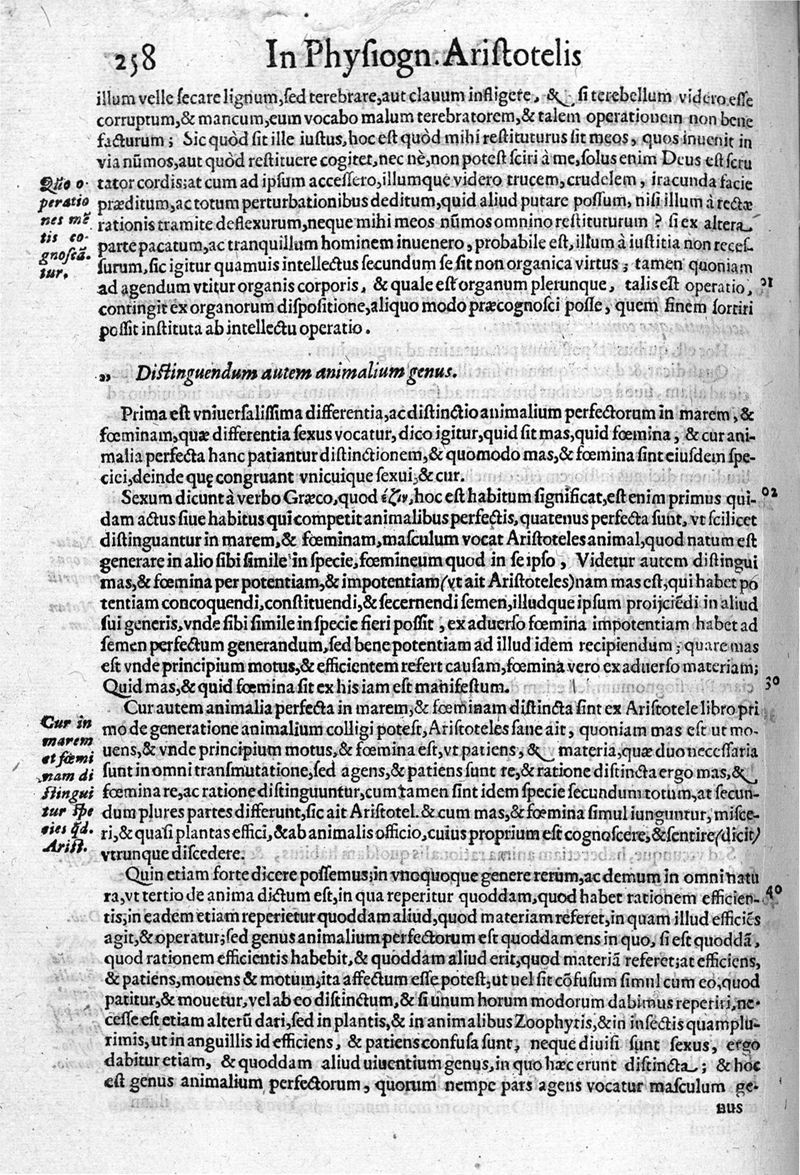 258 In Physiogn. Aristotelis
illum velle secare lignum, sed terebrare, aut clauum infligere, & si terebellum videro esse
corruptum, & mancum, eum vocabo malum terebratorem, & talem operationem non bene
facturum; Sic quòd sit ille iustus, hoc est quòd mihi restituturus sit meos, quos inuenit in
via nũmos, aut quòd restituere cogitet, nec nè, non potest sciri à me, solus enim Deus est scru
tator cordis; at cum ad ipsum accessero, illumque videro trucem, crudelem, iracunda facie
præditum, ac totum perturbationibus deditum, quid aliud putare possum, nisi illum à rectæ
rationis tramite deflexurum, neque mihi meos nũmos omnino restituturum? si ex altera
parte pacatum, ac tranquillum hominem inuenero, probabile est, illum à iustitia non reces
surum, sic igitur quamuis intellectus secundum se sit non organica virtus; tamen quoniam
ad agendum vtitur organis corporis, & quale est organum plerunque, talis est operatio,
contingit ex organorum dispositione, aliquo modo præcognosci posse, quem finem sortiri
possit instituta ab intellectu operatio.
Quo o-
peratio
nes mẽ
tis co-
gnoscã-
tur.
„ Distinguendum autem animalium genus.
Prima est vniuersalissima differentia, ac distinctio animalium perfectorum in marem, &
fœminam, quæ differentia sexus vocatur, dico igitur, quid sit mas, quid fœmina, & cur ani-
malia perfecta hanc patiantur distinctionem, & quomodo mas, & fœmina sint eiusdem spe-
ciei, deinde quę congruant vnicuique sexui, & cur.
Sexum dicunt à verbo Græco, quod hoc est habitum significat, est enim primus qui-
dam actus siue habitus qui competit animalibus perfectis, quatenus perfecta sunt, vt scilicet
distinguantur in marem, & fœminam, masculum vocat Aristoteles animal, quod natum est
generare in alio sibi simile in specie, fœmineum quod in se ipso, Videtur autem distingui
mas, & fœmina per potentiam, & impotentiam (vt ait Aristoteles) nam mas est, qui habet po
tentiam concoquendi, constituendi, & secernendi semen, illudque ipsum proijciẽdi in aliud
sui generis, vnde sibi simile in specie fieri possit, ex aduerso fœmina impotentiam habet ad
semen perfectum generandum, sed bene potentiam ad illud idem recipiendum; quare mas
est vnde principium motus, & efficientem refert causam, fœmina vero ex aduerso materiam;
Quid mas, & quid fœmina sit ex his iam est manifestum.
30
Cur autem animalia perfecta in marem, & fœminam distincta sint ex Aristotele libro pri
mo de generatione animalium colligi potest, Aristoteles sane ait, quoniam mas est ut mo-
uens, & vnde principium motus, & fœmina est, vt patiens, & materia, quæ duo necessaria
sunt in omni transmutatione, sed agens, & patiens sunt re, & ratione distincta ergo mas, &
fœmina re, ac ratione distinguuntur, cum tamen sint idem specie secundum totum, at secun-
dum plures partes differunt, sic ait Aristotel. & cum mas, & fœmina simul iunguntur, misce-
ri, & quasi plantas effici, & ab animalis officio, cuius proprium est cognoscere, & sentire (dicit)
vtrunque discedere.
Cur in
marem
et fœmi
nam di
stingui
tur spe
cies qd.
Arist.
Quin etiam forte dicere possemus; in vnoquoque genere rerum, ac demum in omni natu
ra, vt tertio de anima dictum est, in qua reperitur quoddam, quod habet rationem efficien-
40
tis; in eadem etiam reperietur quoddam aliud, quod materiam referet, in quam illud efficiẽs
agit, & operatur; sed genus animalium perfectorum est quoddam ens in quo, si est quoddã,
quod rationem efficientis habebit, & quoddam aliud erit, quod materiã referet; at efficiens,
& patiens, mouens & motum, ita affectum esse potest, ut uel sit cõfusum simul cum eo, quod
patitur, & mouetur, vel ab eo distinctum, & si unum horum modorum dabimus reperiri, ne-
cesse est etiam alterũ dari, sed in plantis, & in animalibus Zoophytis, & in insectis quamplu-
rimis, ut in anguillis id efficiens, & patiens confusa sunt, neque diuisi sunt sexus, ergo
dabitur etiam, & quoddam aliud uiuentium genus, in quo hæc erunt distincta; & hoc
est genus animalium perfectorum, quorum nempe pars agens vocatur masculum ge-
nus